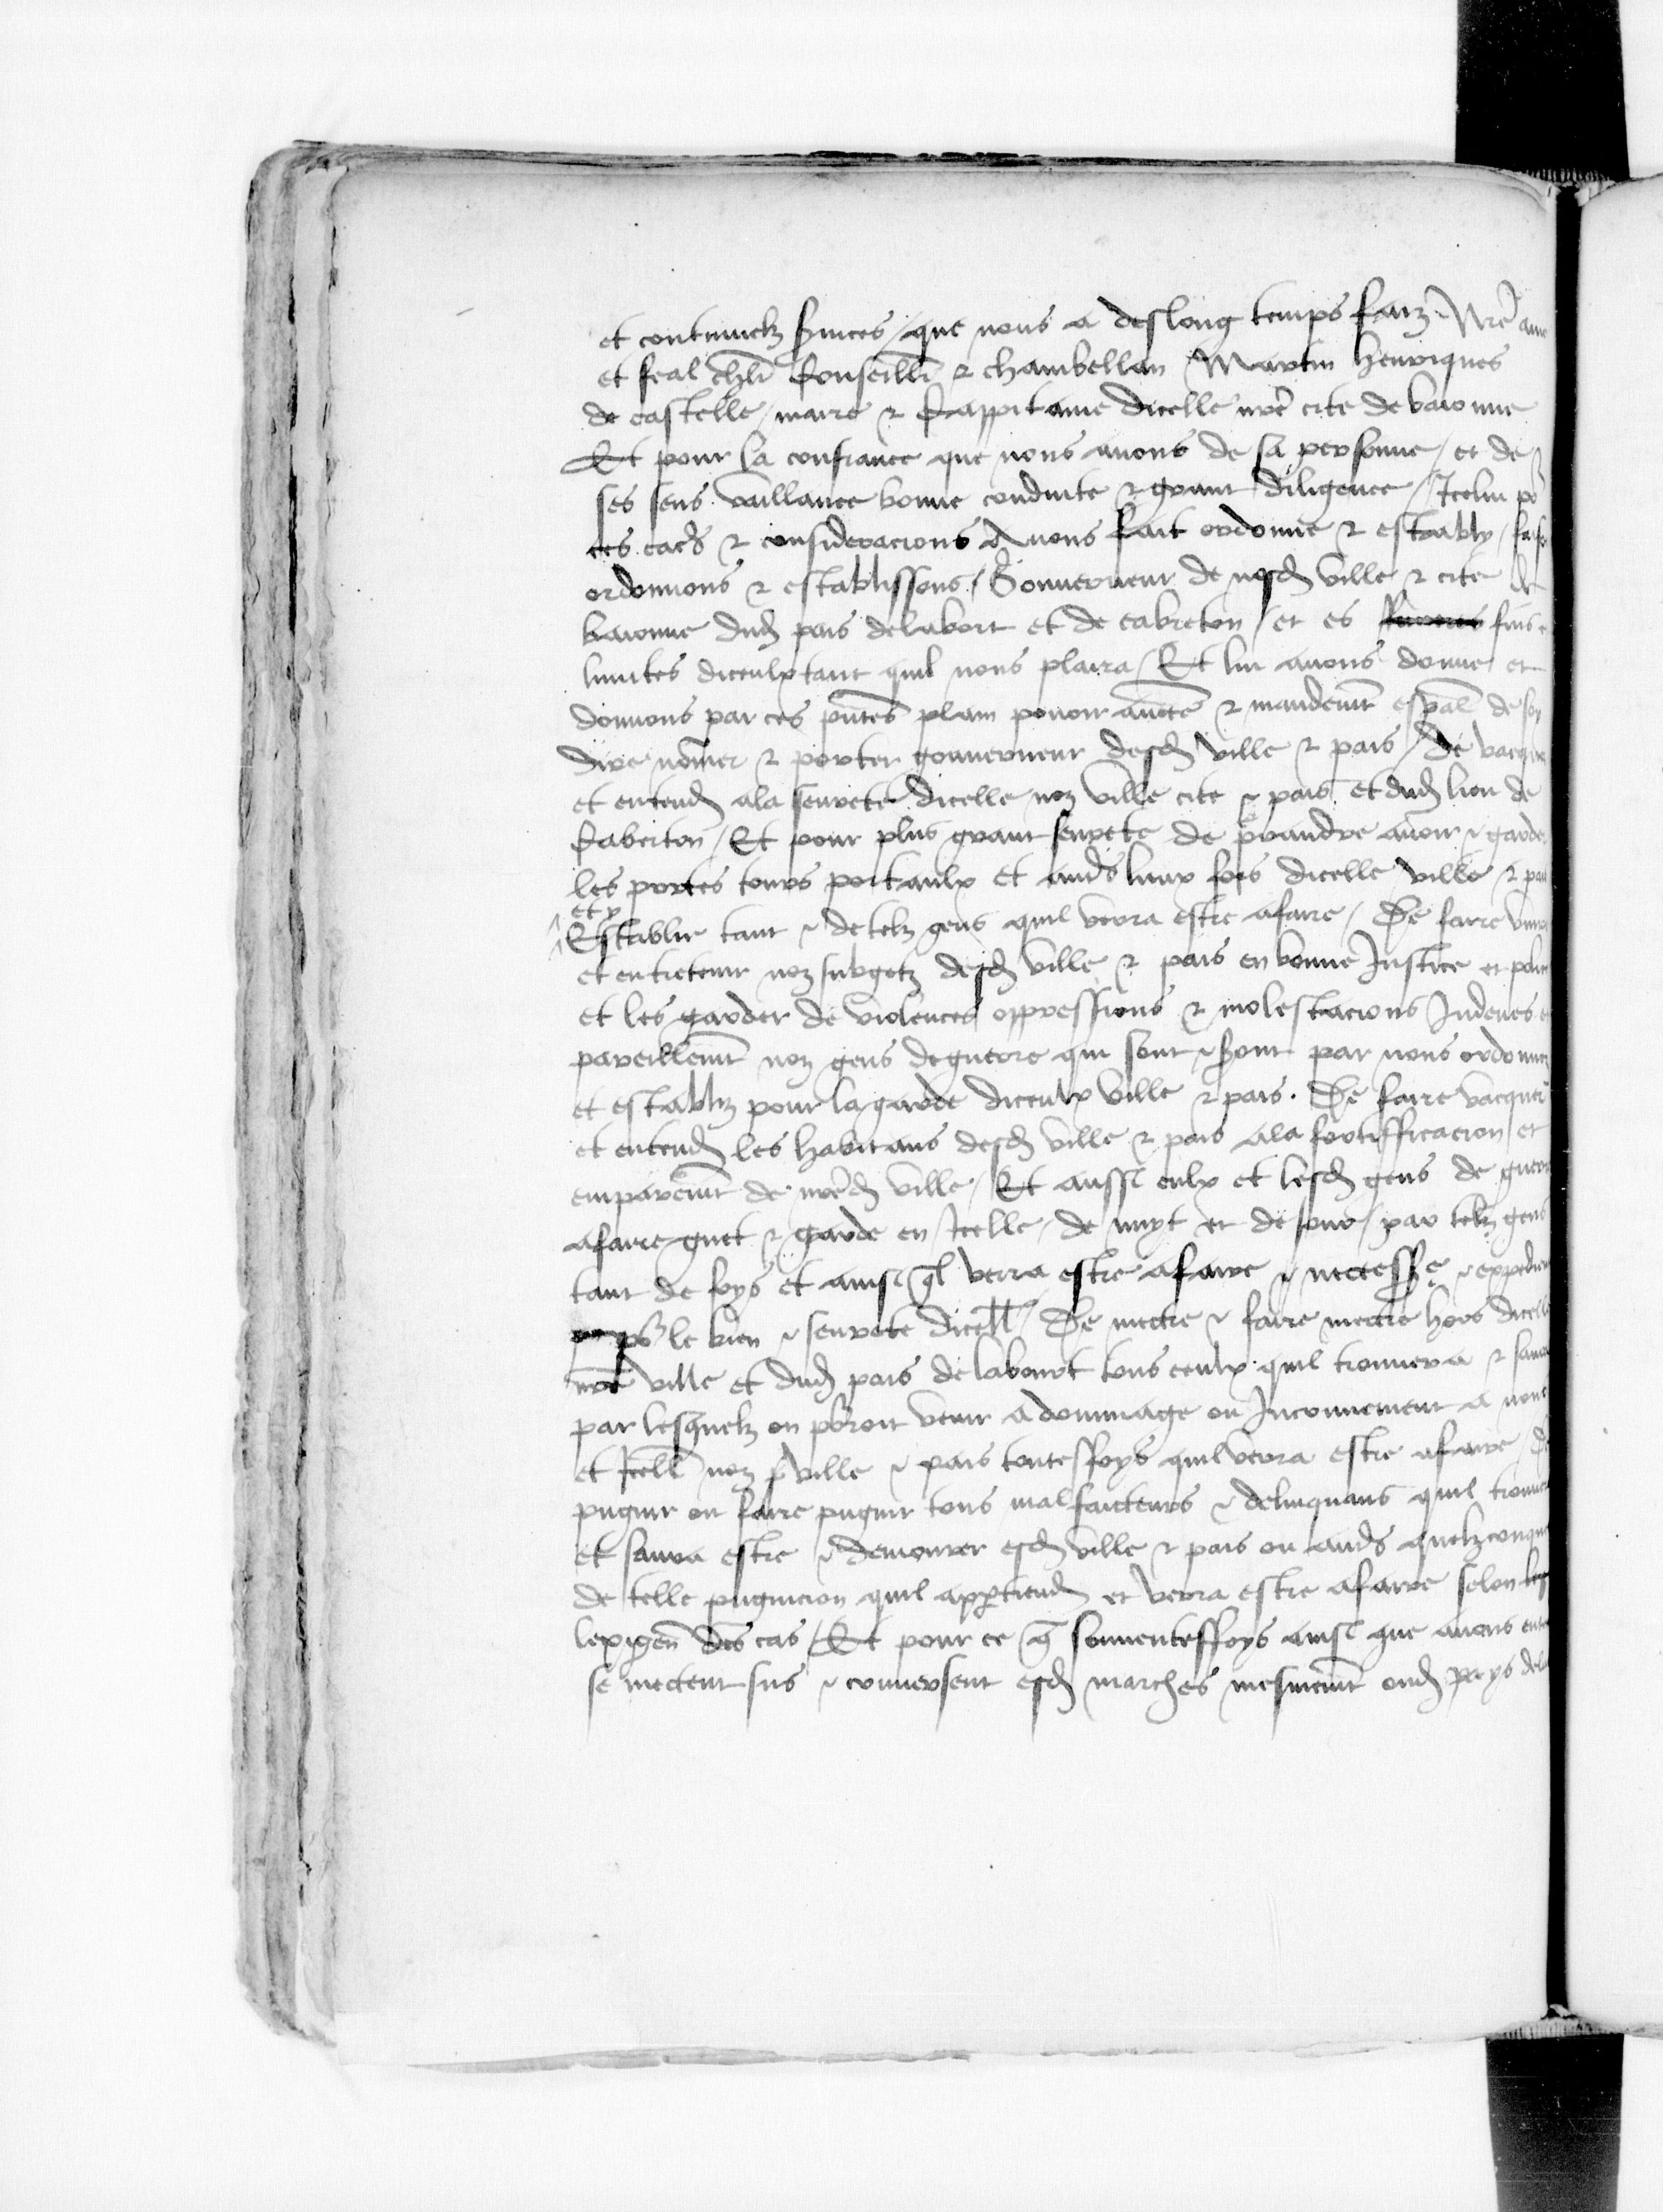 et continuelz s̃uices / que nous a des long temps faiz Nr̃e ame
et feal ch̃lr conseillr̃ & chambellan Martin henriques
de castelle / maire & cappitaine dicelle nr̃e cite de baionne
Et pour la confiance que nous auons de sa personne / et de
ses sens vaillance bonne conduite & grant diligence / Icelui po͛
ces caus̃ & consideracions Auons fait ordonne & estably /
ordonnons & establissons / Gouuerneur de nosd ville & cite de
baionne dud pais delabort et de cabreton / et es fins &
limites diceulx tant quil nous plaira / Et lui auons donne et
donnons par ces pñtes plain pouoir auctẽ & mandemẽt esp̃al de soy
dire nõmer & porter gouuerneur desd ville & pais / De vacquer
et entendr̃ ala seurete dicelle noz ville cite & pais et dud lieu de
Caberton / Et pour plus grant seurete de prandre auoir & garder
les portes tours portaulx et aut̃s lieux fors dicelle ville & pais
et y
Establir tant & de telz gens quil verra estre afaire / De faire viure
et entretenir noz subgetz desd ville & pais en bonne Justice et police
et les garder de violences oppressions & molestacions Indeues et
pareillemẽt noz gens de guerre qui sont & s̃ont par nous ordonnez
et establiz pour la garde diceulx ville & pais. De faire vacquer
et entendr̃ les habitans desd ville & pais ala fortifficacion et
emparemẽt de nr̃ed ville / Et aussi eulx et lesd gens de guerre
afaire guet & garde en Icelle / de nuyt et de iour / par telz gens
tant de foys et ainsi q̃l verra estre afaire & necessr̃e & expedient
po͛ le bien & seurete dicell̃ / De mectre & faire mectre hors dicelle
nr̃e ville et dud pais de labourt tous ceulx quil trouuera & saura
par lesquelz on po͛roit venir a dommage ou Inconuenient a nous
et Icell̃ noz ville & pais toutesfoys quil verra estre afaire / De
pugnir ou faire pugnir tous malfaicteurs & delinquans quil trouuera
et saura estre & demourer esd ville & pais ou aut̃s quelzconques
de telle pugnicion quil app̃tiendr̃ et verra estre afaire selon
lexigen̄ des cas / Et pour ce q̃ souuenteffoys ainsi que auons entendu
se mectent sus & conuersent esd marches mesmemẽt oud pays de la